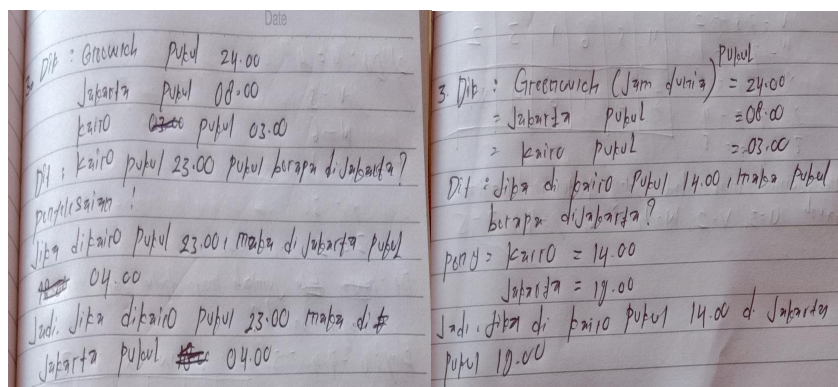 Date
3. Dik : Greenwich pukul 24.00
Jakarta pukul 08.00
Kairo pukul 03.00
Dit : Kairo pukul 23.00 pukul berapa di Jakarta?
penyelesaian !
Jika dikairo pukul 23.00, maka di Jakarta pukul
04.00
Jadi, Jika dikairo pukul 23.00 maka di
Jakarta pukul 04.00
pukul
3. Dik : Greenwich (Jam dunia) = 24.00
= Jakarta pukul = 08.00
= Kairo pukul = 03.00
Dit : Jika di kairo pukul 14.00, maka pukul
berapa diJakarta?
peny = Kairo = 14.00
Jakarta = 19.00
Jadi, Jika di kairo pukul 14.00 di Jakarta
pukul 19.00